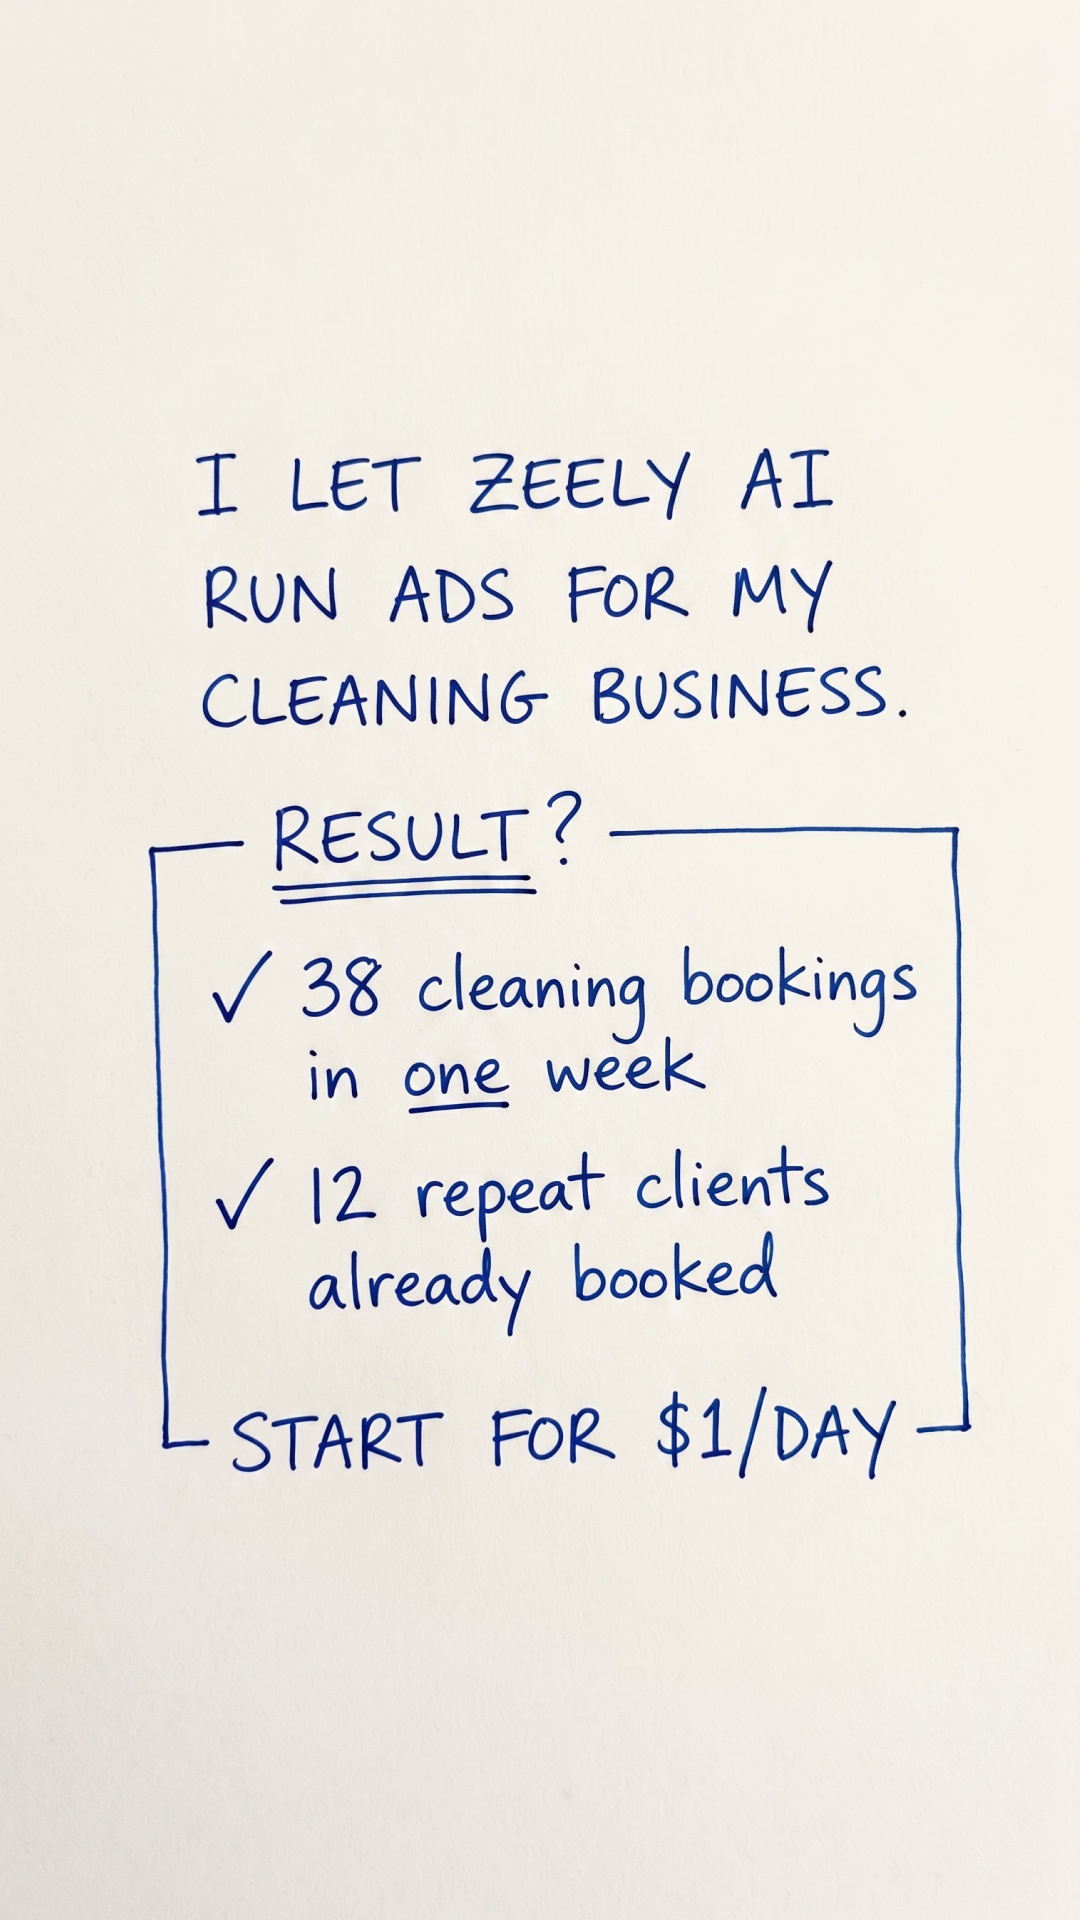 I LET ZEELY AI
RUN ADS FOR MY
CLEANING BUSINESS.
RESULT?
✓ 38 cleaning bookings
in one week
✓ 12 repeat clients
already booked
START FOR $1/DAY